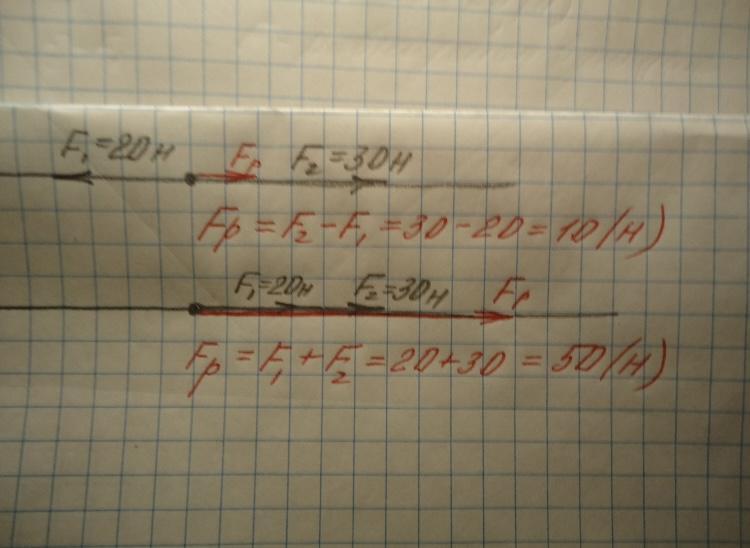 F₁=20н Fр F₂=30н
Fр = F₂ - F₁ = 30 - 20 = 10 (н)
F₁=20н F₂=30н Fр
Fр = F₁ + F₂ = 20 + 30 = 50 (н)